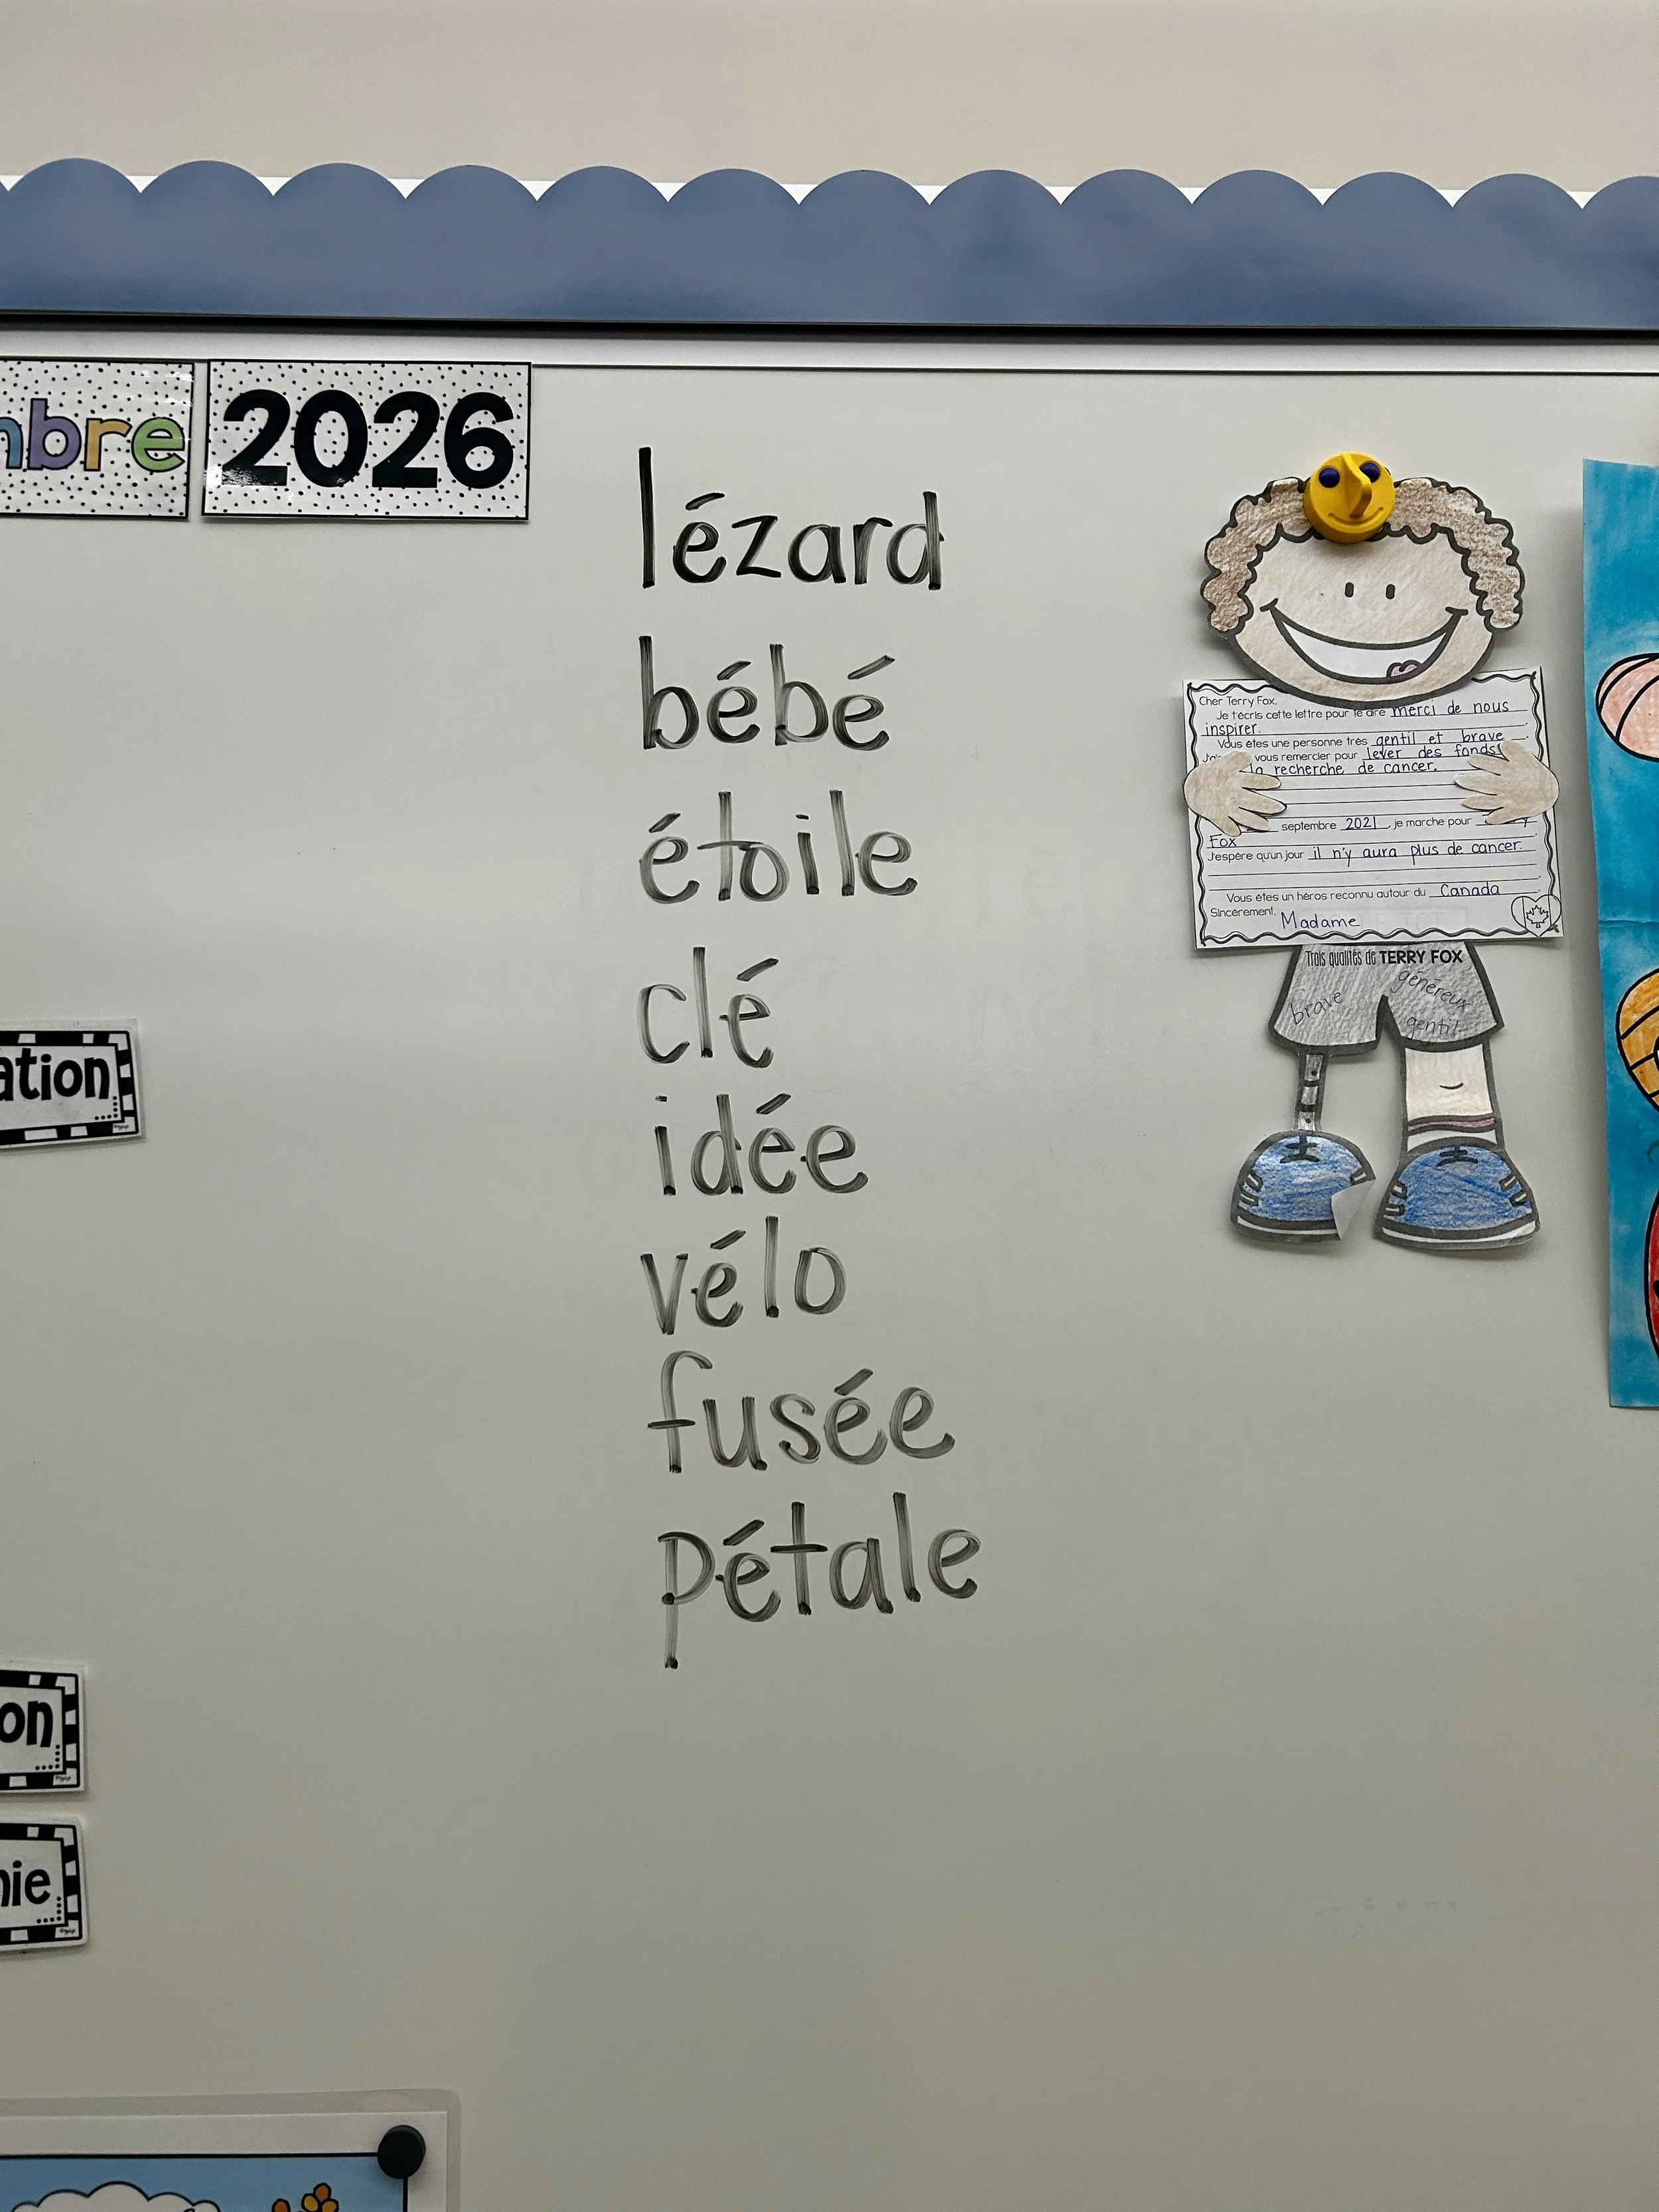 2026
lézard
bébé
étoile
clé
idée
vélo
fusée
pétale
Cher Terry Fox,
Je t'écris cette lettre pour te dire merci de nous
inspirer.
Vous êtes une personne très gentil et brave.
vous remercier pour lever des fonds
la recherche de cancer.
septembre 2021, je marche pour
Fox
J'espère qu'un jour il n'y aura plus de cancer.
Vous êtes un héros reconnu autour du Canada.
Sincèrement, Madame
Trois qualités de TERRY FOX
brave
généreux
gentil